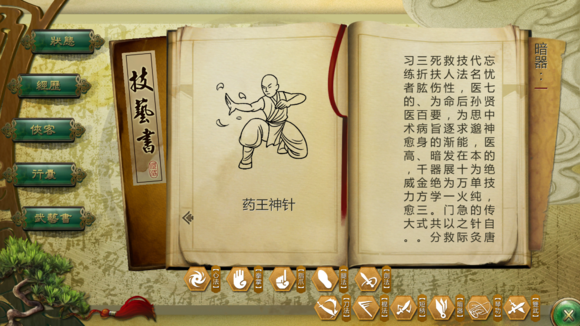 狀態
經歷
俠客
行囊
武藝書
技藝書
药王神针
暗器：一
忘忧七贤中神医的绝技，传自唐
代名医孙思邈，本为单纯的针灸
技法，后为求能在十万火急之际
救人性命，逐渐发展为一门以救
死扶伤为要旨的暗器绝学。共分
三折肱、百病身、千金方三式。
习练者的医术愈高，威力愈大。